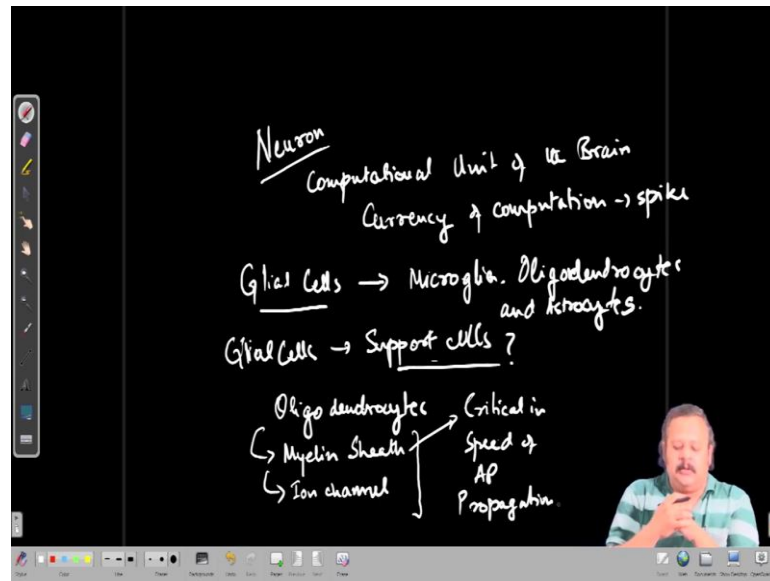 Neuron
Computational Unit of the Brain
Currency of computation → spike
Glial Cells → Microglia. Oligodendrocytes
and Astrocytes.
Glial Cells → Support cells ?
Oligodendrocytes
↳ Myelin Sheath
↳ Ion channel
Critical in
Speed of
AP
Propagation.